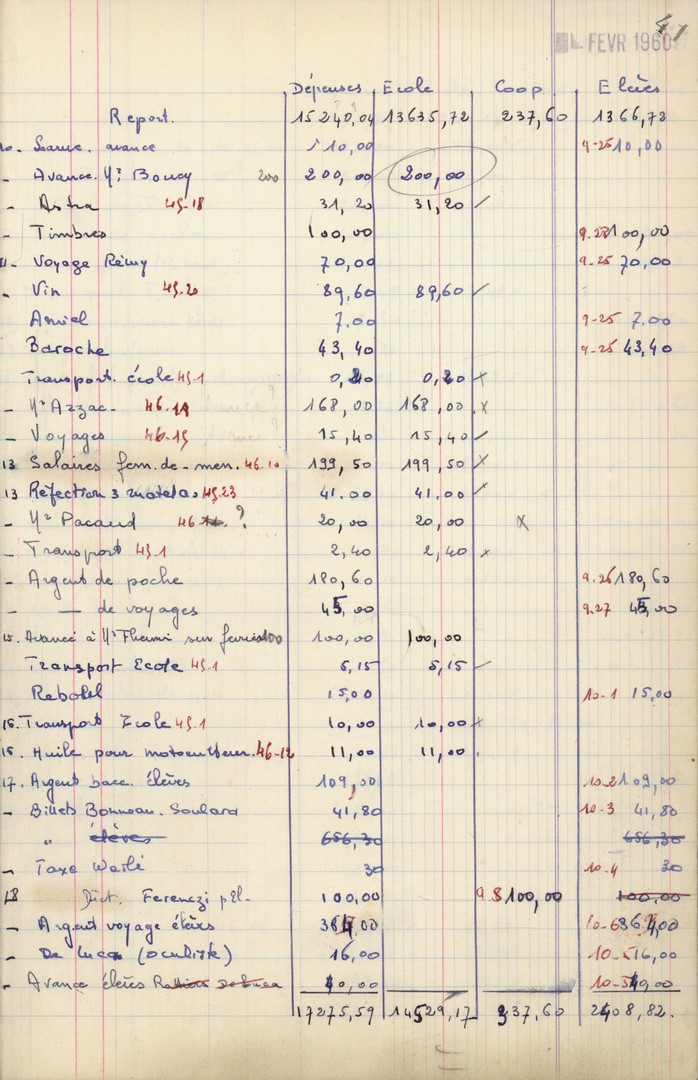 41
FEVR 1960
Dépenses Ecole Coop Elèves
Report. 15240,04 13635,72 237,60 1366,72
10. avance 10,00 9-25 10,00
- Avance Mr Boucy 200 200,00 200,00
- Astra 45-18 31,20 31,20
- Timbres 100,00 100,00
11- Voyage Rémy 70,00 9-25 70,00
- Vin 45-20 89,60 89,60
Amiel 7.00 9-25 7.00
Baroche 43,40 9-25 43,40
Transport. école 45-1 0,20 0,20
- Mr Azzac- 168,00 168,00
- Voyages 46-15 15,40 15,40
13 Salaires fem. de - men. 46-10 199,50 199,50
13 Réfection 3 matelas 45-23 41.00 41.00
- Mr Pacaud 46 ? 20,00 20,00 X
- Transport 45-1 2,40 2,40
- Argent de poche 180,60 9.26 180,60
- — de voyages 45,00 9.27 45,00
15. Avance à Mr Thami sur 100,00 100,00
Transport Ecole 45-1 6,15 6,15
Rebotel 15,00 10-1 15,00
16. Transport Ecole 45-1 10,00 10,00
16. Huile pour motoculteur. 46-12 11,00 11,00
17. Argent bacc. élèves 109,00 10-2 109,00
- Billets Bonneau. Soulard 41,80 10-3 41,80
" élèves 656,30 656,30
- Taxe 30 10-4 30
18 Dict. Ferenczi pr El. 100,00 9.8 100,00 100,00
- Argent voyage élèves 364,00 10-6 364,00
- De Luca (oculiste) 16,00 10-5 16,00
- Avance élèves De Luca 40,00 10-5 40,00
17275,59 14529,17 337,60 2408,82.